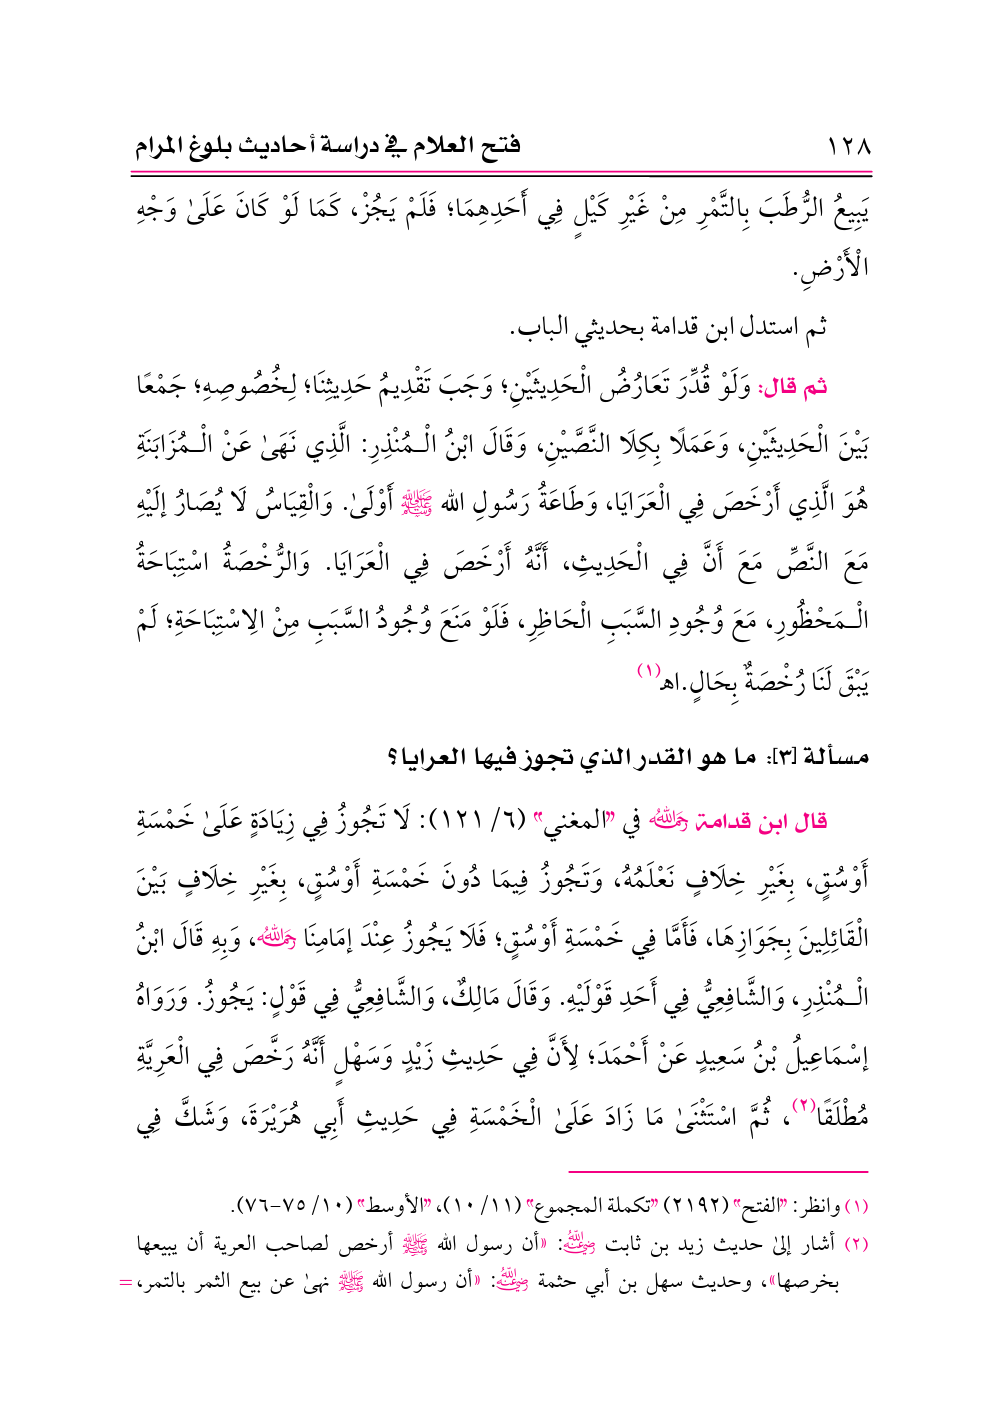 ١٢٨ فتح العلام في دراسة أحاديث بلوغ المرام
يَبِيعُ الرُّطَبَ بِالتَّمْرِ مِنْ غَيْرِ كَيْلٍ فِي أَحَدِهِمَا؛ فَلَمْ يَجُزْ، كَمَا لَوْ كَانَ عَلَىٰ وَجْهِ
الْأَرْضِ.
ثم استدل ابن قدامة بحديثي الباب.
ثم قال: وَلَوْ قُدِّرَ تَعَارُضُ الْحَدِيثَيْنِ؛ وَجَبَ تَقْدِيمُ حَدِيثِنَا؛ لِخُصُوصِهِ؛ جَمْعًا
بَيْنَ الْحَدِيثَيْنِ، وَعَمَلًا بِكِلَا النَّصَّيْنِ، وَقَالَ ابْنُ الْـمُنْذِرِ: الَّذِي نَهَىٰ عَنْ الْـمُزَابَنَةِ
هُوَ الَّذِي أَرْخَصَ فِي الْعَرَايَا، وَطَاعَةُ رَسُولِ الله ﷺ أَوْلَىٰ. وَالْقِيَاسُ لَا يُصَارُ إلَيْهِ
مَعَ النَّصِّ مَعَ أَنَّ فِي الْحَدِيثِ، أَنَّهُ أَرْخَصَ فِي الْعَرَايَا. وَالرُّخْصَةُ اسْتِبَاحَةُ
الْـمَحْظُورِ، مَعَ وُجُودِ السَّبَبِ الْحَاظِرِ، فَلَوْ مَنَعَ وُجُودُ السَّبَبِ مِنْ الِاسْتِبَاحَةِ؛ لَمْ
يَبْقَ لَنَا رُخْصَةٌ بِحَالٍ.اهـ(١)
مسألة [٣]: ما هو القدر الذي تجوز فيها العرايا؟
قال ابن قدامة رَحِمَهُ اللهُ في "المغني" (٦/ ١٢١): لَا تَجُوزُ فِي زِيَادَةٍ عَلَىٰ خَمْسَةِ
أَوْسُقٍ، بِغَيْرِ خِلَافٍ نَعْلَمُهُ، وَتَجُوزُ فِيمَا دُونَ خَمْسَةِ أَوْسُقٍ، بِغَيْرِ خِلَافٍ بَيْنَ
الْقَائِلِينَ بِجَوَازِهَا، فَأَمَّا فِي خَمْسَةِ أَوْسُقٍ؛ فَلَا يَجُوزُ عِنْدَ إمَامِنَا رَحِمَهُ اللهُ، وَبِهِ قَالَ ابْنُ
الْـمُنْذِرِ، وَالشَّافِعِيُّ فِي أَحَدِ قَوْلَيْهِ. وَقَالَ مَالِكٌ، وَالشَّافِعِيُّ فِي قَوْلٍ: يَجُوزُ. وَرَوَاهُ
إسْمَاعِيلُ بْنُ سَعِيدٍ عَنْ أَحْمَدَ؛ لِأَنَّ فِي حَدِيثِ زَيْدٍ وَسَهْلٍ أَنَّهُ رَخَّصَ فِي الْعَرِيَّةِ
مُطْلَقًا(٢)، ثُمَّ اسْتَثْنَىٰ مَا زَادَ عَلَىٰ الْخَمْسَةِ فِي حَدِيثِ أَبِي هُرَيْرَةَ، وَشَكَّ فِي
(١) وانظر: "الفتح" (٢١٩٢) "تكملة المجموع" (١١/ ١٠)، "الأوسط" (١٠/ ٧٥-٧٦).
(٢) أشار إلىٰ حديث زيد بن ثابت رَضِيَ اللهُ عَنْهُ: «أن رسول الله ﷺ أرخص لصاحب العرية أن يبيعها
بخرصها»، وحديث سهل بن أبي حثمة رَضِيَ اللهُ عَنْهُ: «أن رسول الله ﷺ نهىٰ عن بيع الثمر بالتمر، =